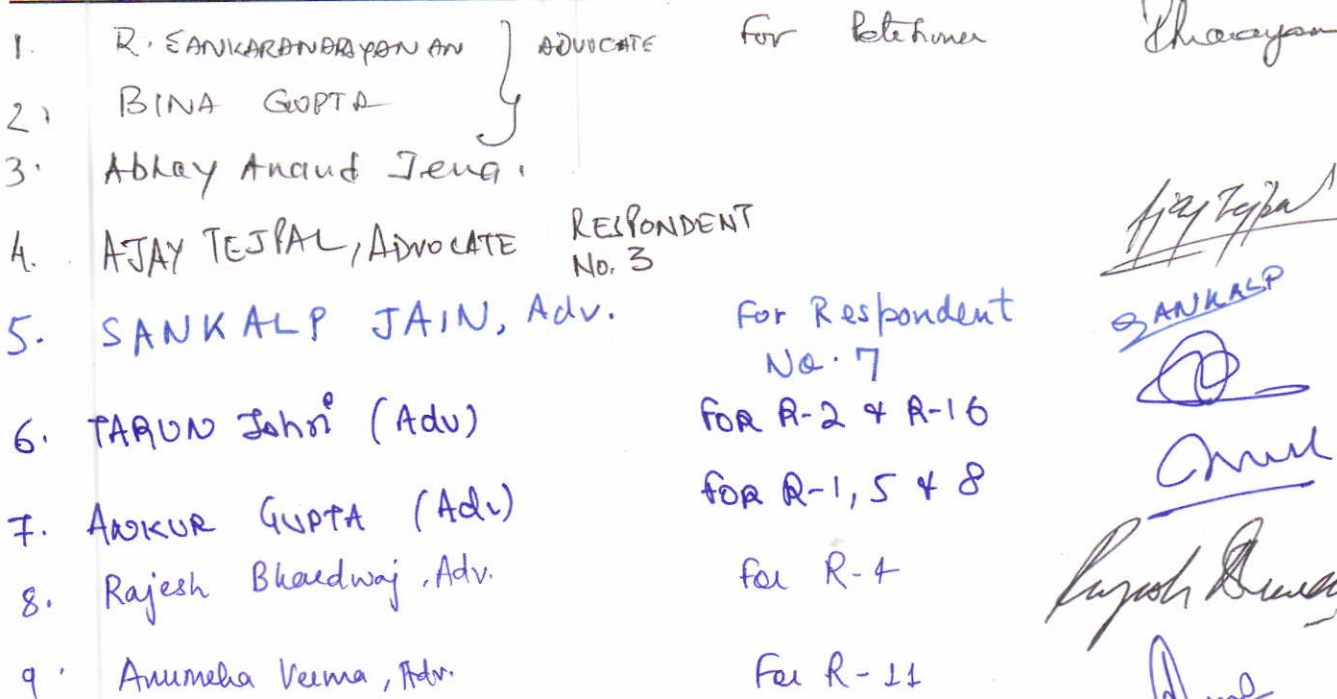 1. R. SANKARANARAYANAN } ADVOCATE For Petitioner
2. BINA GUPTA
3. Abhay Anand Jena.
4. AJAY TEJPAL, ADVOCATE RESPONDENT No. 3 Ajay Tejpal
5. SANKALP JAIN, Adv. For Respondent No. 7 SANKALP
6. TARUN Johri (Adv) FOR R-2 & R-16
7. ANKUR GUPTA (Adv) FOR R-1, 5 & 8
8. Rajesh Bhardwaj, Adv. For R-4
9. Anumeha Verma, Adv. For R-11